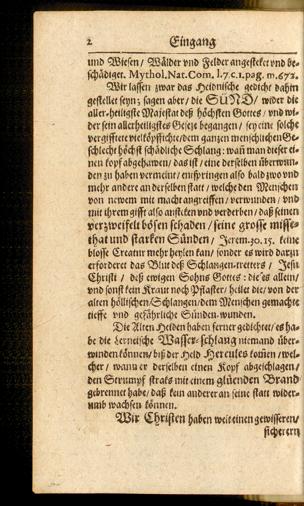 2 Eingang
und Wiesen / Wälder und Felder angestekt und be-
schädiget. Mythol. Nat. Com. l. 7. c. 1. pag. m. 672.
Wir lassen zwar das Heidnische gedicht dahin
gestellet seyn; sagen aber / die SÜND / wider die
aller-heiligste Majestat deß höchsten Gottes / und wi-
der sein allerheiligstes Gesetz begangen / sey eine solche
vergifftete vielköpffichte / dem ganzen menschlichen Ge-
schlecht höchst schädliche Schlang: wañ man dieser ei-
nen kopf abgehawen / das ist / eine derselben überwun-
den zu haben vermeine / entspringen also bald zwo und
mehr andere an derselben statt / welche den Menschen
von newem mit macht angreiffen / verwunden / und
mit ihrem gifft also anstecken und verderben / daß seinen
verzweifelt bösen schaden / seine grosse misse-
that und starken Sünden / Jerem. 30. 15. keine
blosse Creatur mehr heylen kan / sonder es wird darzu
erforderet das Blut deß Schlangen-tretters / Jesu
Christi / deß ewigen Sohns Gottes: diß es allein /
und sonst kein Kraut noch Pflaster / heilet die / von der
alten höllischen Schlangen / dem Menschen gemachte
tieffe und gefährliche Sünden-wunden.
Die Alten Helden haben ferner gedichtet / es ha-
be die lerneische Wasser-schlang niemand über-
winden können / biß der Held Hercules kom̃en / wel-
cher / wann er derselben einen Kopf abgeschlagen /
den Strumpf straks mit einem glüenden Brand
gebrennet habe / daß kein anderer an seine statt wider-
umb wachsen können.
Wir Christen haben weit einen gewisseren /
sicherern